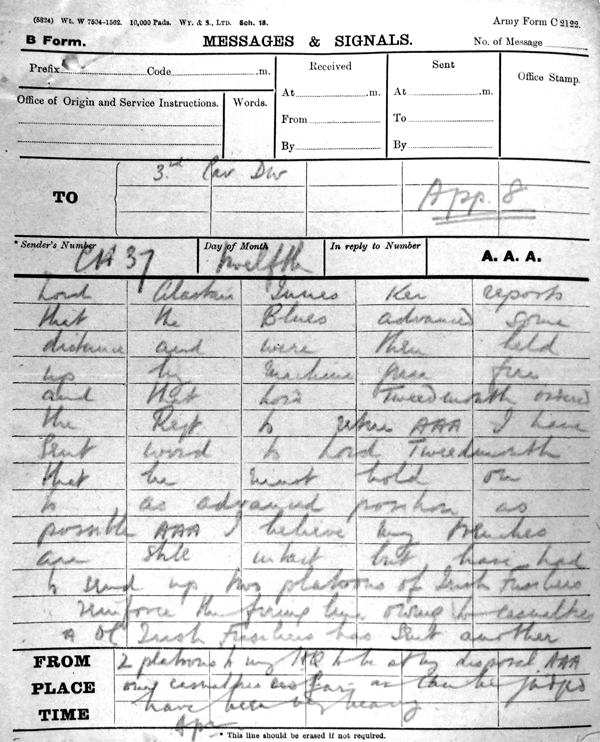 (5824) Wt. W 7504-1562. 10,000 Pads. Wy. & S., Ltd. Sch. 18.
Army Form C 2122.
B Form.
MESSAGES & SIGNALS.
No. of Message
Prefix Code m.
Received
Sent
Office Stamp.
At m.
At m.
Office of Origin and Service Instructions.
Words.
From
To
By
By
TO
3rd Cav Div
App. 8
* Sender's Number
Day of Month
In reply to Number
A. A. A.
CH 37
twelfth
Lord Alastair Innes Ker reports
that the Blues advanced some
distance and were then held
up by machine gun fire
and that Lord Tweedmouth ordered
the Regt to retire AAA I have
sent word to Lord Tweedmouth
that he must hold on
to as advanced position as
possible AAA I believe my trenches
are still intact but have had
to send up two platoons of Irish Fusiliers
reinforce the firing line owing to casualties
A OC Irish Fusiliers has sent another
2 platoons to my HQ to be at my disposal AAA
FROM
PLACE
TIME
casualties as far as can be judged
have been very heavy
* This line should be erased if not required.